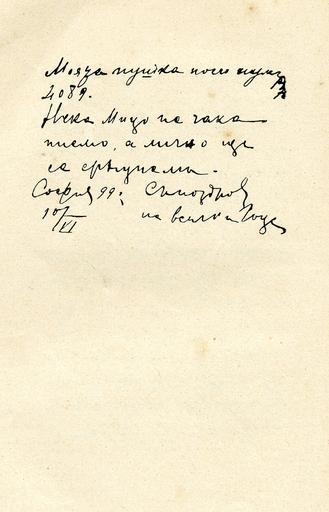 Моята пушка носи нумер
4089.
Нека Мицо не чака
писмо, а лично ще
се срещнеме.
София 99 г. С поздрав
10/VI на всички Гоце